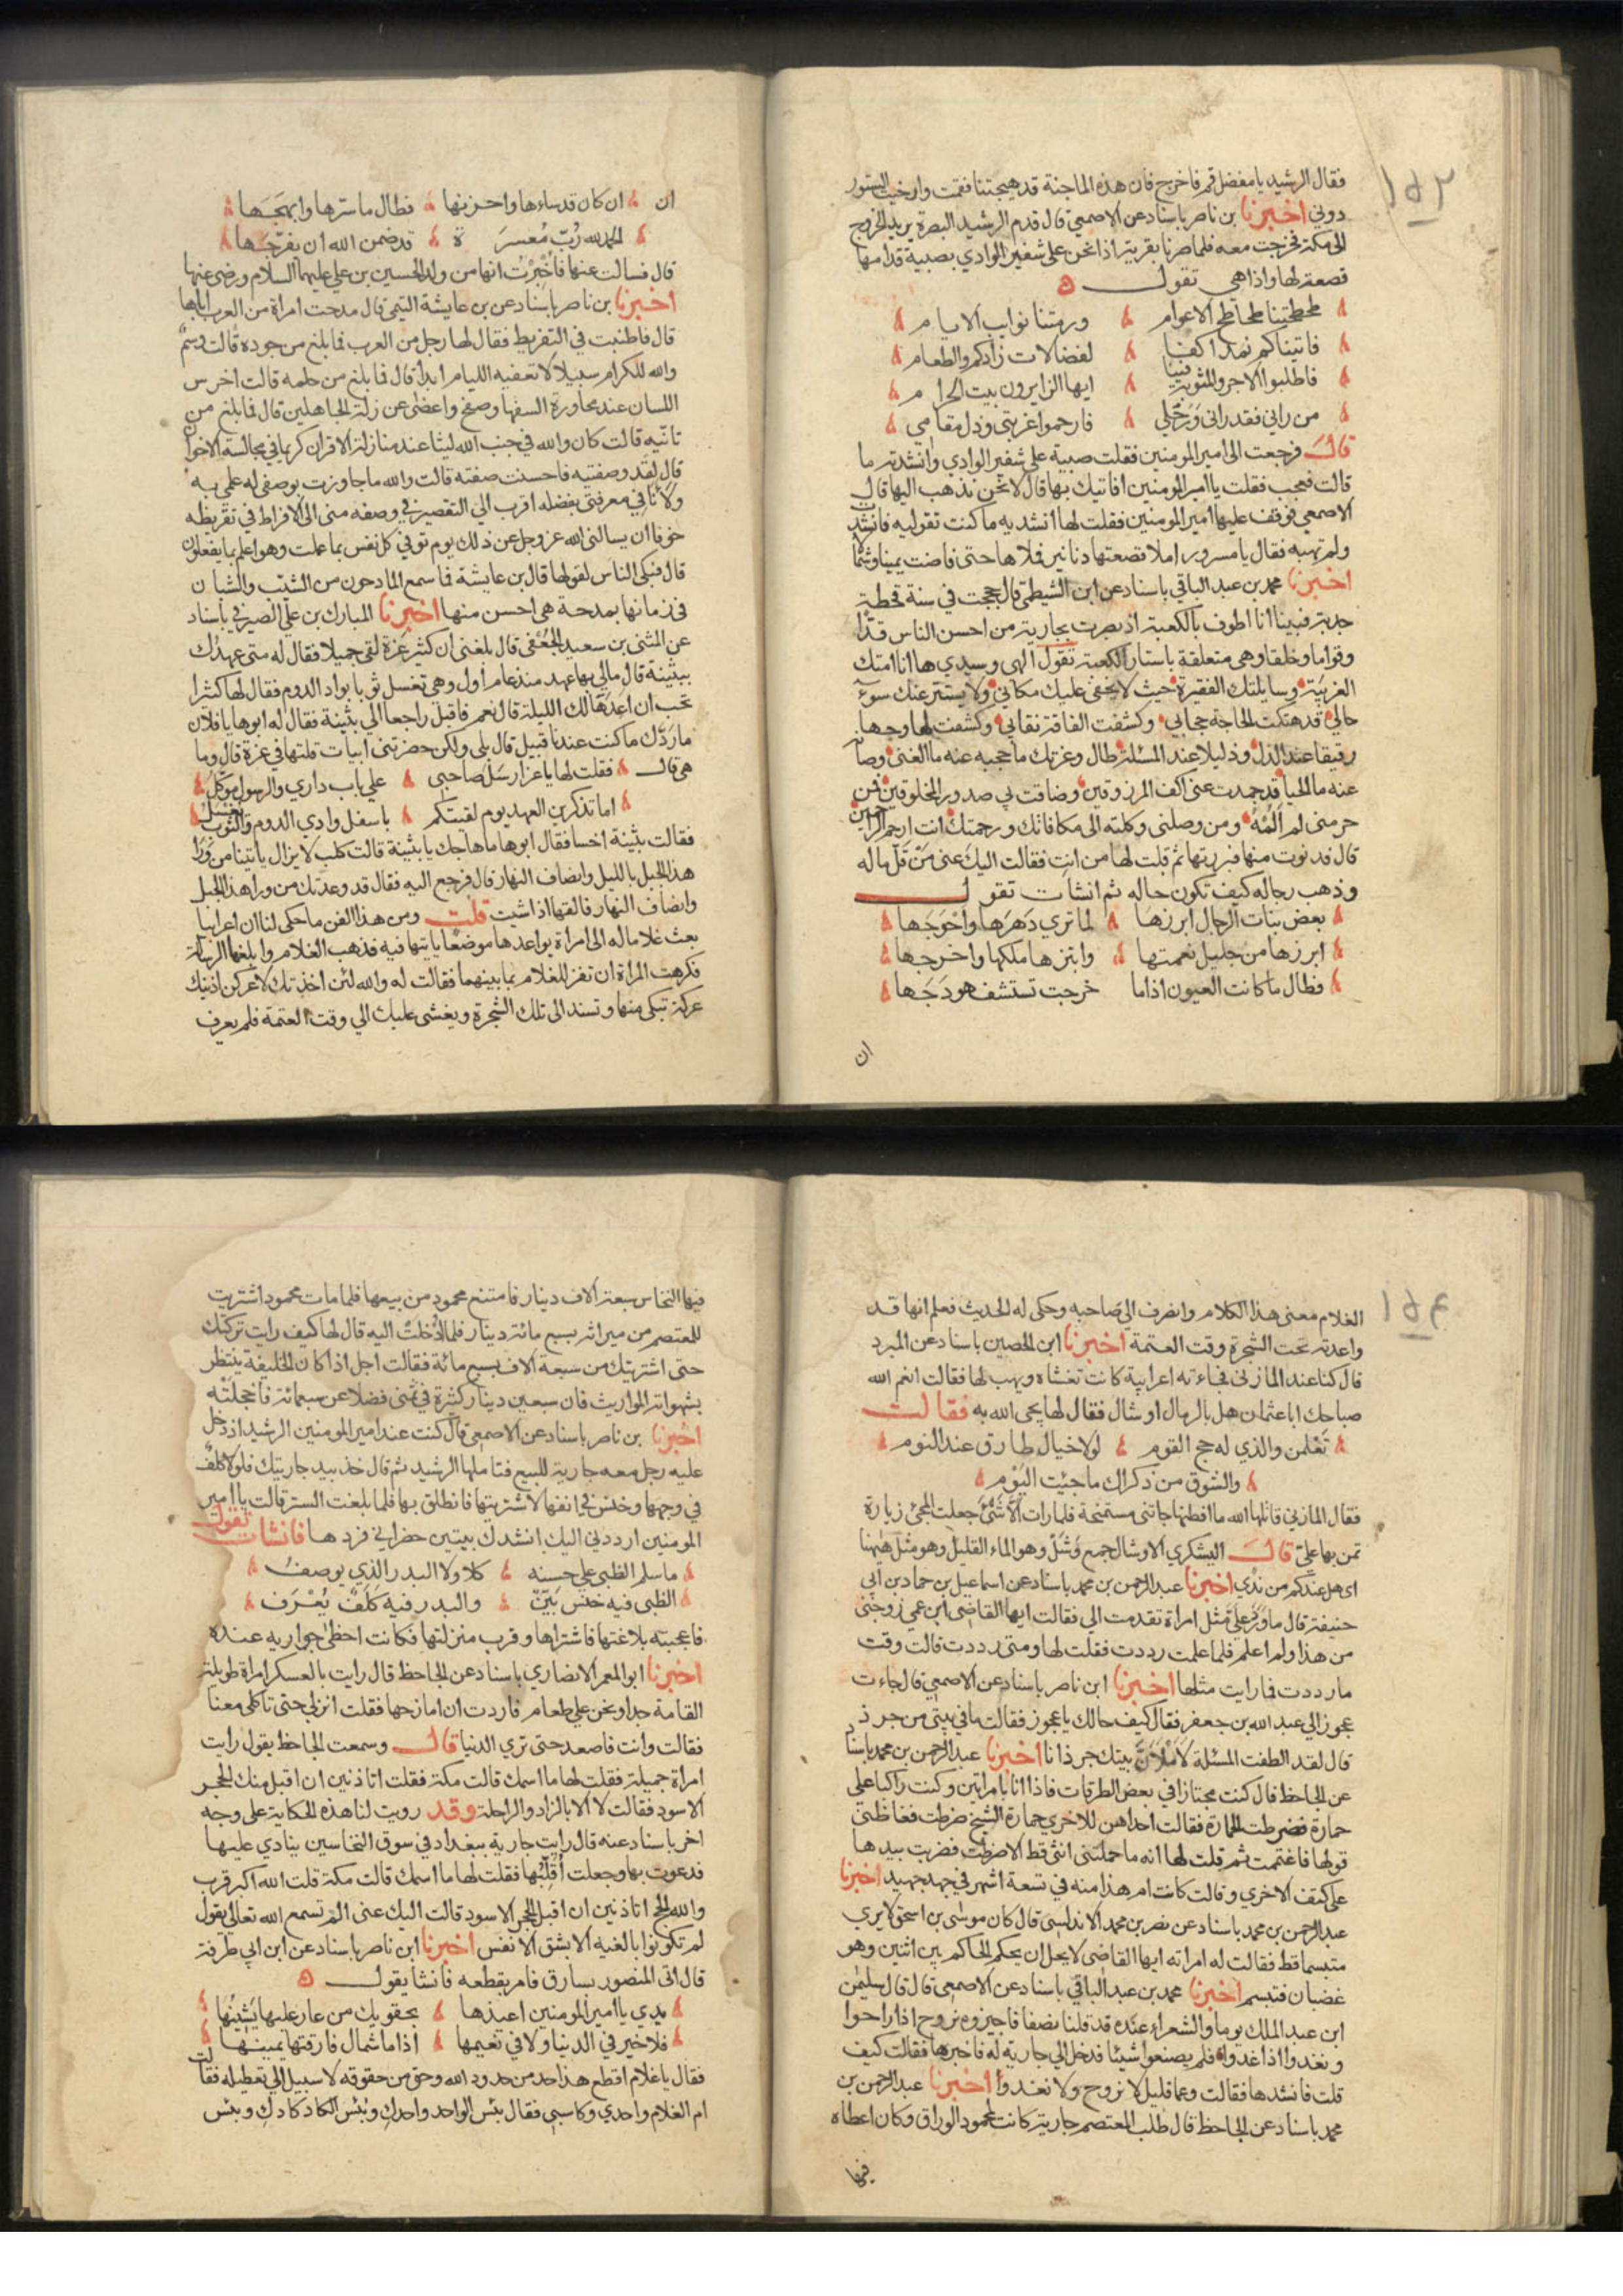 ١٥٣
فقال الرشيد يا مفضل قم فاخرج فان هذه الماجنة قد هيجتنا فقمت وارخيت الستور
دوني اخبرنا بن ناصر باسناد عن الاصمعي قال قدم الرشيد البصرة يريد الخروج
الى مكة فخرجت معه فلما صرنا بقرية اذا نحن على شفير الوادي بصبية قدامها
قصعة لها واذا هي تقول
طحطحتنا طحاطح الاعوام ورمتنا نوايب الايام
فاتيناكم نمد اكفنا لفضالات زادكم والطعام
فاطلبوا الاجر والمثوبة فينا ايها الزايرون بيت الحرام
من راني فقد راني ورحلي فارحموا غربتي وذل مقامي
قال فرجعت الى امير المومنين فقلت صبية على شفير الوادي وانشدته ما
قالت فعجب فقلت يا امير المومنين افاتيك بها قال لا نحن نذهب اليها قال
الاصمعي فوقف عليها امير المومنين فقلت لها انشديه ما كنت تقوليه فانشدته
ولم تهبه فقال يا مسرور املا قصعتها دنانير فملاها حتى فاضت يمينا وشمالا
اخبرنا محمد بن عبد الباقي باسناد عن ابن الشيظمي قال حججت في سنة قحطية
جدبة فبينا انا اطوف بالكعبة اذ بصرت بجارية من احسن الناس قدا
وقواما وخلقا وهي متعلقة باستار الكعبة تقول الهي وسيدي ها انا امتك
الغريبة وسايلتك الفقيرة حيث لا يخفى عليك مكاني ولا يستتر عنك سوء
حالي قد هتكت الحاجة حجابي وكشفت الفاقة نقابي وكشفت لها وجها
رقيقا عند الذل وذليلا عند المسئلة طال وعزتك ما حجبه عنه ما الغنى وصانه
عنه ما الحيا قد جمدت عنى اكف المرزوقين وضاقت بي صدور المخلوقين فمن
حرمني لم المه ومن وصلني وكلته الى مكافاتك ورحمتك انت ارحم الراحمين
قال فدنوت منها فبررتها ثم قلت لها من انت فقالت اليك عنى من قل ماله
وذهب رجاله كيف تكون حاله ثم انشات تقول
بعض بنات الرجال ابرزها لما ترى دهرها واحوجها
ابرزها من جليل نعمتها وابتزها ملكها واخرجها
فطال ما كانت العيون اذا ما خرجت تستشف هودجها
ان
ان ان كان قد ساءها واحزنها فطال ما سترها وابهجها
الحمد لله رب معسرة قد ضمن الله ان يفرجها
قال فسالت عنها فاخبرت انها من ولد الحسين بن علي عليهما السلام ورضى عنها
اخبرنا بن ناصر باسناد عن بن عايشة التيمي قال مدحت امراة من العرب اباها
قال فاطنبت في التقريظ فقال لها رجل من العرب فما بلغ من جوده قالت وسم
والله للكرام سبيلا لا تعفيه الليام ابدا قال فما بلغ من حلمه قالت اخرس
اللسان عند محاورة السفها وصفح واغضى عن زلة الجاهلين قال فما بلغ من
تانيه قالت كان والله في جنب الله ليثا عند منازلة الاقران كريما في مجالسة الاخوان
قال لقد وصفتيه فاحسنت صفته قالت والله ما جاوزت بوصفى له علمي به
ولانا في معرفتي بفضله اقرب الى التقصير في وصفه منى الى الافراط في تقريظه
خوفا ان يسالني الله عز وجل عن ذلك يوم توفى كل نفس بما عملت وهو اعلم بما يفعلون
قال فبكى الناس لقولها قال بن عايشة فما سمع المادحون من الشيب والشبان
في زمانها بمدحة هي احسن منها اخبرنا المبارك بن علي الصيرفي باسناد
عن المثنى بن سعيد الجعفى قال بلغني ان كثير عزة لقى جميلا فقال له متى عهدك
ببثينة قال مالى بها عهد منذ عام اول وهي تغسل ثوبا بواد الدوم فقال لها كثيرا
تحب ان اعدها لك الليلة قال نعم فاقبل راجعا الى بثينة فقال له ابوها يا فلان
ما ردك ما كنت عندنا قبيل قال بلى ولكن حضرتنى ابيات قلتها في عزة قال وما
هى قال فقلت لها يا عز ارسل صاحبى على باب داري والرسول موكل
اما تذكرين العهد يوم لقيتكم باسفل وادي الدوم والثوب يغسل
فقالت بثينة اخسا فقال ابوها ما هاجك يا بثينة قالت كلب لا يزال ياتينا من ورا
هذا الجبل بالليل وانصاف النهار قال فرجع اليه فقال قد وعدتك من ورا هذا الجبل
وانصاف النهار فالقها اذا شيت قلت ومن هذا الفن ما حكى لنا ان اعرابيا
بعث غلاما له الى امراة يواعدها موضعا ياتيها فيه فذهب الغلام وابلغها الرسالة
فكرهت المراة ان تقر للغلام بما بينهما فقالت له والله لئن اخذتك لاعركن اذنيك
عركة تبكى منها وتسند الى تلك الشجرة ويغشى عليك الى وقت العتمة فلم يعرف
١٥٤
الغلام معنى هذا الكلام وانصرف الى صاحبه وحكى له الحديث فعلم انها قد
واعدته تحت الشجرة وقت العتمة اخبرنا ابن الحصين باسناد عن المبرد
قال كنا عند المازني فجاءته اعرابية كانت تغشاه ويهب لها فقالت انعم الله
صباحك ابا عثمان هل بالرمال اوشال فقال لها يجى الله به فقالت
تعلمن والذي له حج القوم لولا خيال طارق عند النوم
والشوق من ذكراك ما جئيت اليوم
فقال المازني قاتلها الله ما افطنها جاتنى مستمنحة فلما رات الا شئ جعلت المجئ زيارة
تمن بها علي قال اليشكري الاوشال جمع وشل وهو الماء القليل وهو مثل هيهنا
اى هل عندكم من ندى اخبرنا عبد الرحمن بن محمد باسناد عن اسماعيل بن حماد بن ابى
حنيفة قال ما ورد على مثل امراة تقدمت الى فقالت ايها القاضى ابن عمى زوجنى
من هذا ولم اعلم فلما علمت رددت فقلت لها ومتى رددت قالت وقت
ما رددت فما رايت مثلها اخبرنا ابن ناصر باسناد عن الاصمعي قال جاءت
عجوز الى عبد الله بن جعفر فقال كيف حالك يا عجوز فقالت ما في بيتى من جرذ
قال لقد الطفت المسئلة لاملان بيتك جرذانا اخبرنا عبد الرحمن بن محمد باسناد
عن الجاحظ قال كنت مجتازا في بعض الطرقات فاذا انا بامراتين وكنت راكبا على
حمارة فضرطت الحمارة فقالت احداهن للاخرى حمارة الشيخ ضرطت فغاظني
قولها فاغتممت ثم قلت لها انه ما حملتنى انثى قط الا ضرطت فضربت بيدها
على كتف الاخرى وقالت كانت ام هذا منه في تسعة اشهر في جهد جهيد اخبرنا
عبد الرحمن بن محمد باسناد عن نصر بن محمد الاندلسى قال كان موسى بن اسحق لا يرى
متبسما قط فقالت له امراته ايها القاضى لا يحل ان يحكم الحاكم بين اثنين وهو
غضبان فتبسم اخبرنا محمد بن عبد الباقي باسناد عن الاصمعى قال قال سليمن
ابن عبد الملك يوما والشعراء عنده قد قلنا نصفا فاجيزوه نروح اذا راحوا
ونغدوا اذا غدوا فلم يصنعوا شيئا فدخل الى جارية له فاخبرها فقالت كيف
قلت فانشدها فقالت وعما قليل لا نروح ولا نغدوا اخبرنا عبد الرحمن بن
محمد باسناد عن الجاحظ قال طلب المعتصم جارية كانت لمحمود الوراق وكان اعطاه
فيها
فيها النخاس سبعة الاف دينار فامتنع محمود من بيعها فلما مات محمود اشتريت
للمعتصم من ميراثه بسبع مائة دينار فلما ادخلت اليه قال لها كيف رايت تركتك
حتى اشتريتك من سبعة الاف بسبع مائة فقالت اجل اذا كان الخليفة ينتظر
بشهواته المواريث فان سبعين دينار كثيرة في ثمنى فضلا عن سبعمائة فاخجلته
اخبرنا بن ناصر باسناد عن الاصمعى قال كنت عند امير المومنين الرشيد اذ دخل
عليه رجل معه جارية للبيع فتاملها الرشيد ثم قال خذ بيد جاريتك فلولا كلف
في وجهها وخنس في انفها لاشتريتها فانطلق بها فلما بلغت الستر قالت يا امير
المومنين ارددني اليك انشدك بيتين حضراني فردها فانشات تقول
ما سلم الظبى على حسنه كلا ولا البدر الذي يوصف
الظبى فيه خنس بين والبدر فيه كلف يعرف
فاعجبته بلاغتها فاشتراها وقرب منزلتها فكانت احظى جواريه عنده
اخبرنا ابو المعمر الانصاري باسناد عن الجاحظ قال رايت بالعسكر امراة طويلة
القامة جدا ونحن على طعام فاردت ان امازحها فقلت انزلى حتى تاكلى معنا
فقالت وانت فاصعد حتى ترى الدنيا قال وسمعت الجاحظ يقول رايت
امراة جميلة فقلت لها ما اسمك قالت مكة فقلت اتاذنين ان اقبل منك الحجر
الاسود فقالت لا الا بالزاد والراحلة وقد رويت لنا هذه الحكاية على وجه
اخر باسناد عنه قال رايت جارية ببغداد في سوق النخاسين ينادى عليها
فدعوت بها وجعلت اقلبها فقلت لها ما اسمك قالت مكة قلت الله اكبر قرب
والله الحج اتاذنين ان اقبل الحجر الاسود قالت اليك عنى الم تسمع الله تعالى يقول
لم تكونوا بالغيه الا بشق الانفس اخبرنا ابن ناصر باسناد عن ابن ابى طرفة
قال اتى المنصور بسارق فامر بقطعه فانشا يقول
يدي يا امير المومنين اعيذها بحقويك من عار عليها يشينها
فلا خير في الدنيا ولا في نعيمها اذا ما شمال فارقتها يمينها
فقال يا غلام اقطع هذا حد من حدود الله وحق من حقوقه لا سبيل الى تعطيله فقالت
ام الغلام واحدي وكاسبي فقال بئس الواحد واحدك وبئس الكاد كادك وبئس